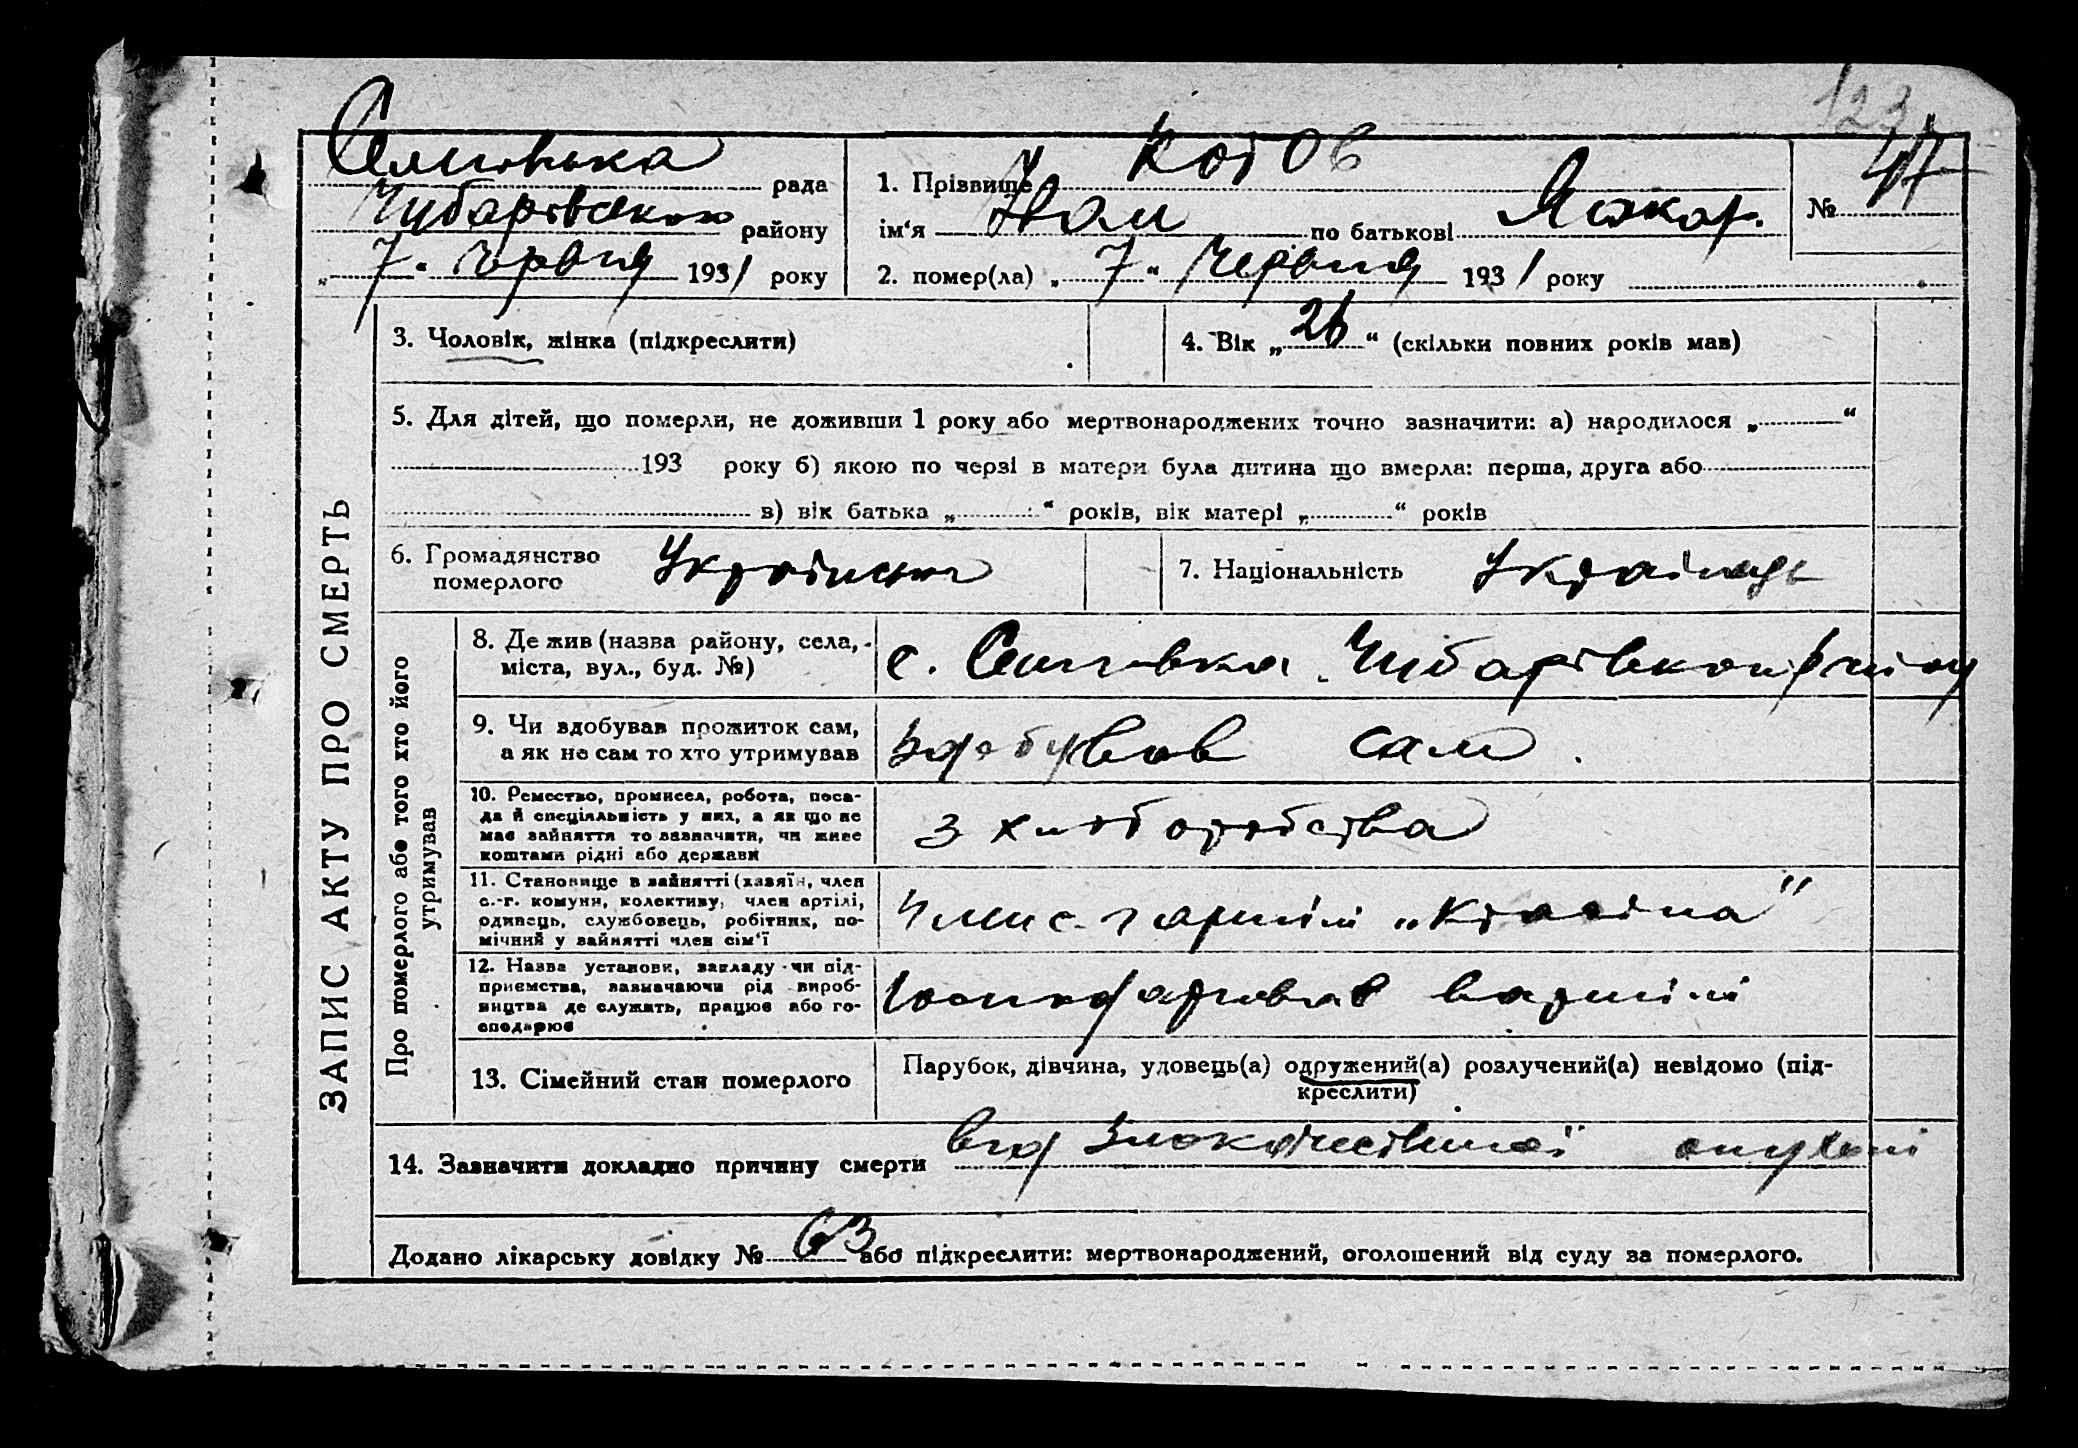 123
Семенівська рада
Чубарівського району
„ 7 “ червня 1931 року
1. Прізвище Котов
ім‘я по батькові Макар.
№ 47
2. помер(ла) „ 7 “ Червня 1931 року
ЗАПИС АКТУ ПРО СМЕРТЬ
3. Чоловік, жінка (підкреслити)
4. Вік „ 26 “ (скільки повних років мав)
5. Для дітей, що померли, не доживши 1 року або мертвонароджених точно зазначити: а) народилося „ “
193 року б) якою по черзі в матери була дитина що вмерла: перша, друга або
в) вік батька „ “ років, вік матері „ “ років
6. Громадянство
померлого
Українське
7. Національність Українець
Про померлого або того хто його
утримував
8. Де жив (назва району, села,
міста, вул., буд. №)
с. Чубарівського району
9. Чи здобував прожиток сам,
а як не сам то хто утримував
здобував сам.
10. Ремество, промисел, робота, поса-
да й спеціяльність у них, а як що не
має зайняття то зазначити, чи живе
коштами рідні або держави
з хліборобства
11. Становище в зайнятті (хазяїн, член
с.-г. комуни, колективу, член артілі,
одинець, службовець, робітник, по-
мічний у зайнятті член сім‘ї
член с. г артілі „ “
12. Назва установи, закладу чи під-
приємства, зазначаючи рід вироб-
ництва де служить, працює або го-
сподарює
господарював в артілі
13. Сімейний стан померлого
Парубок, дівчина, удовець(а) одружений(а) розлучений(а) невідомо (під-
креслити)
14. Зазначити докладно причину смерти від злокачественої опухолі
Додано лікарську довідку № 63 або підкреслити: мертвонароджений, оголошений від суду за померлого.